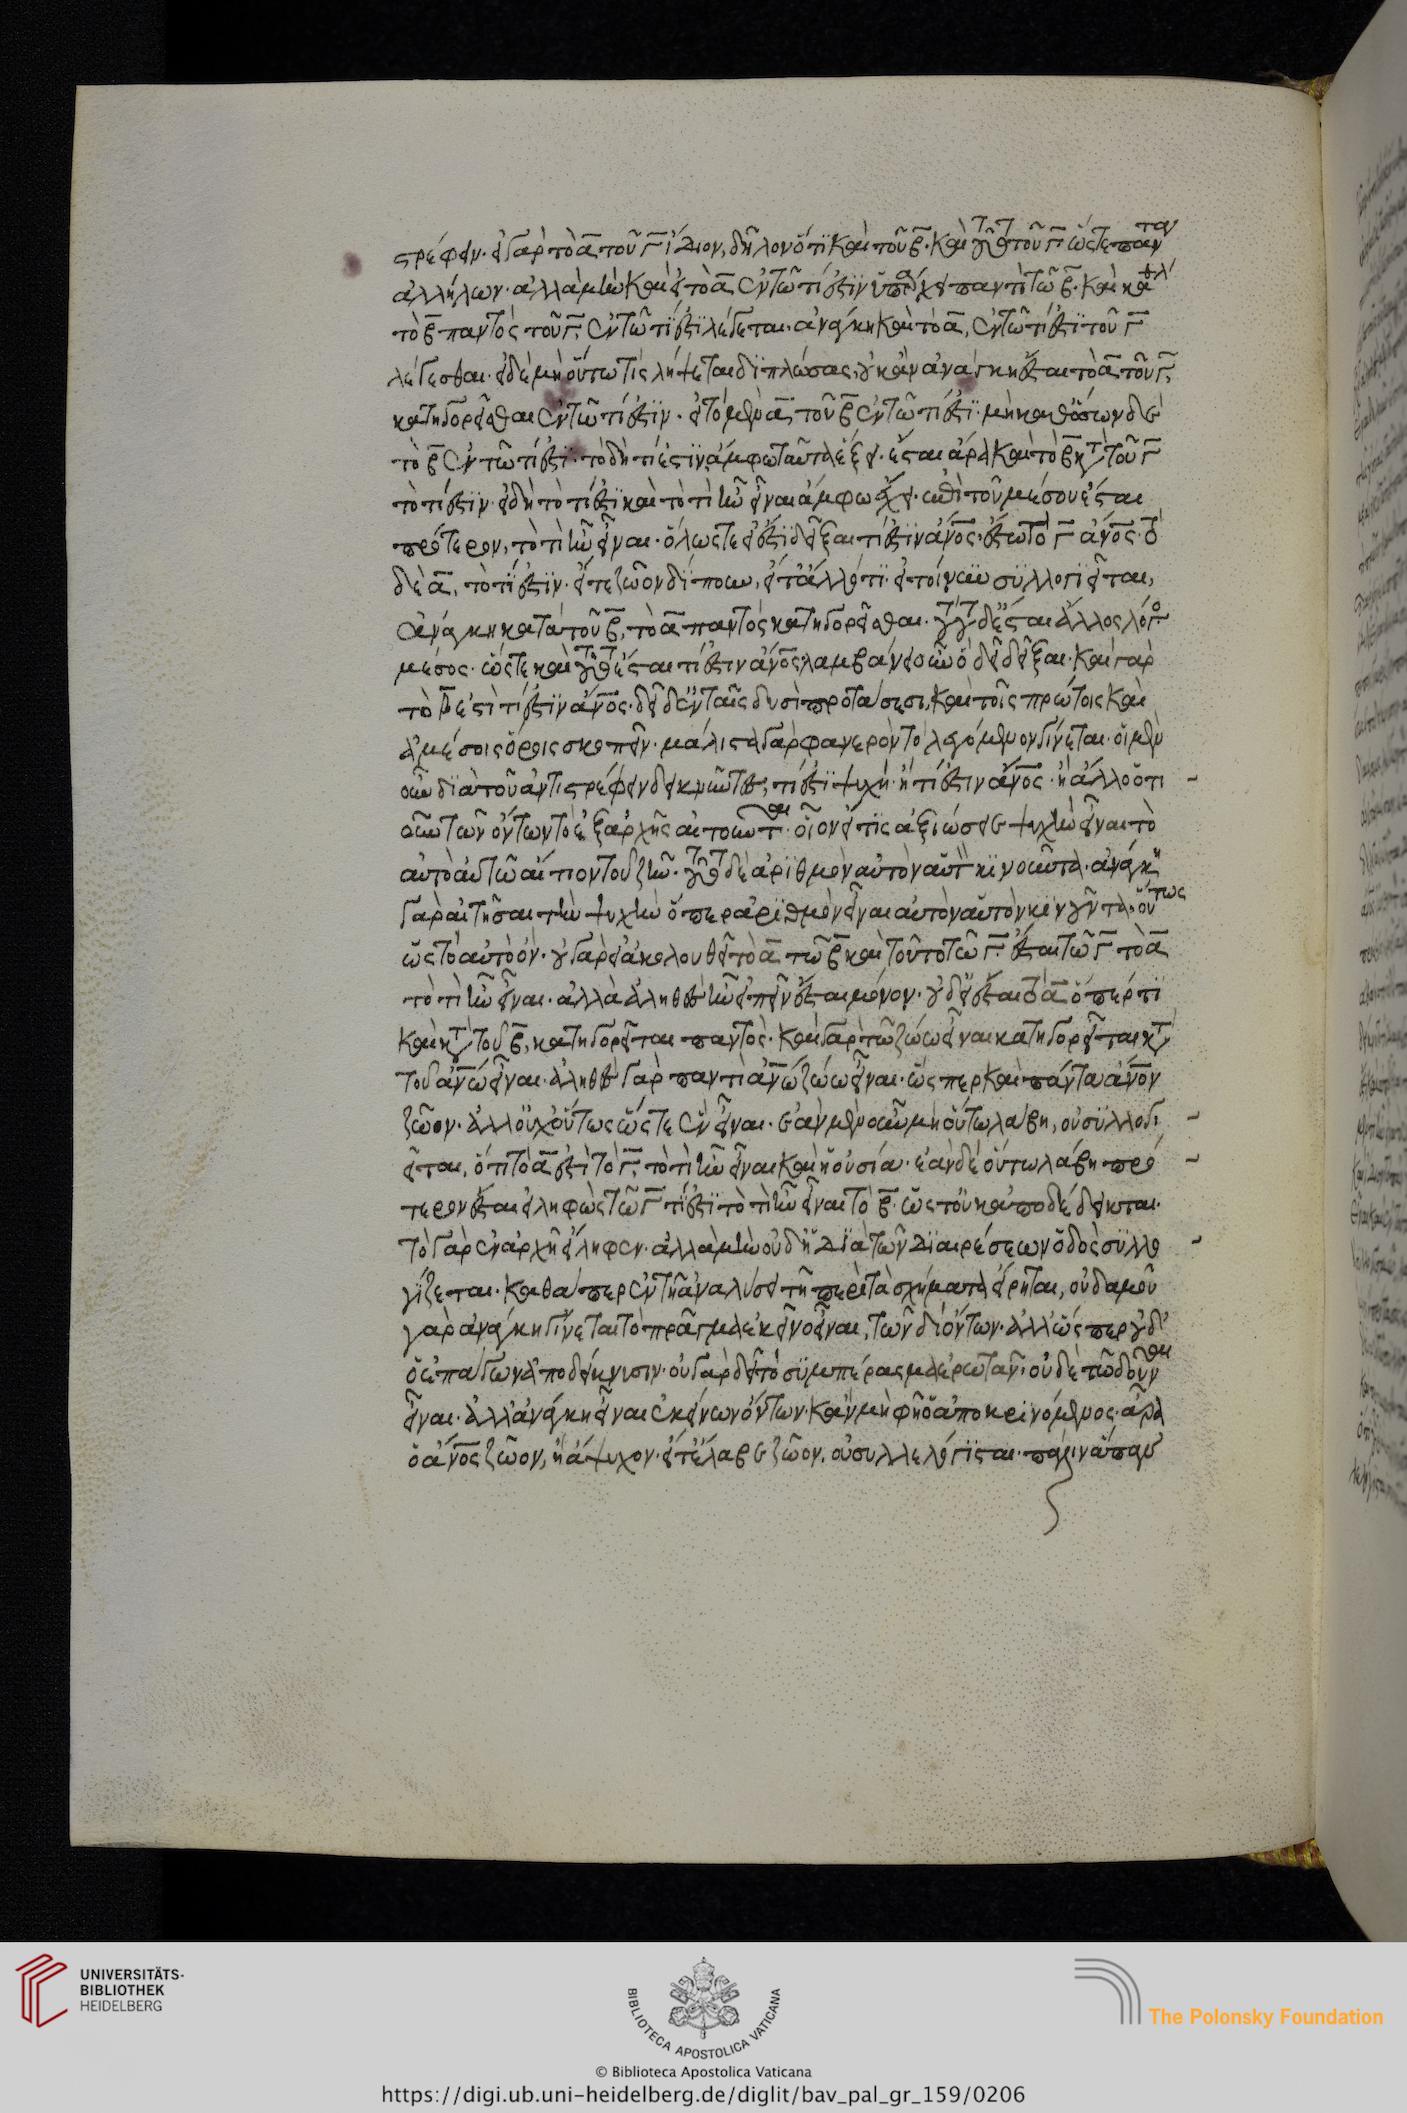 στρέφειν· εἰ γὰρ τὸ α τοῦ γ ἴδιον, δῆλον ὅτι καὶ τοῦ β· καὶ τοῦτο τοῦ γ· ὥστε πάντα
ἀλλήλων· ἀλλὰ μὴν καὶ εἰ τὸ α ἐν τῶ τί ἐστιν ὑπάρχει παντὶ τῶ β· καὶ καθόλου
τὸ β παντὸς τοῦ γ, ἐν τῶ τί ἐστι λέγεται· ἀνάγκη καὶ τὸ α, ἐν τῶ τί ἐστι τοῦ γ
λέγεσθαι· εἰ δὲ μὴ οὕτω τὶς λήψεται διπλώσας, οὐκ ἀνάγκη ἔσται τὸ α τοῦ γ,
κατηγορεῖσθαι ἐν τῶ τί ἐστιν· εἰ τὸ μὲν α τοῦ β ἐν τῶ τί ἐστι· μὴ καθ' ὅσων δὲ
τὸ β ἐν τῶ τί ἐστι· τὸ δὴ τί ἐστιν ἄμφω ταῦτα ἕξει· ἔσται ἄρα καὶ τὸ β κατὰ τοῦ γ
τὸ τί ἐστιν· εἰ δὴ τὸ τί ἐστι καὶ τὸ τί ἦν εἶναι ἄμφω ἔχει· ἐπὶ τοῦ μέσου ἔσται
πρότερον, τὸ τί ἦν εἶναι· ὅλως τε εἰ ἔστι δεῖξαι τί ἐστιν ἄνος· ἔστω τὸ γ ἄνος· τὸ
δὲ α, τὸ τί ἐστιν· εἴτε ζῶον δίπουν, εἴτ' ἄλλό τι· εἰ τοίνυν συλλογιεῖται,
ἀνάγκη κατὰ τοῦ β, τὸ α παντὸς κατηγορεῖσθαι· τούτου δ' ἔσται ἄλλος λόγος
μέσος· ὥστε καὶ τοῦτο ἔσται τί ἐστιν ἄνος· λαμβάνει οὖν ὃ δεῖ δεῖξαι· καὶ γὰρ
τὸ β ἐστὶ τί ἐστιν ἄνος· δεῖ δ' ἐν ταῖς δυσὶ προτάσεσι, καὶ τοῖς πρώτοις καὶ
ἀμέσοις ὅροις σκοπεῖν· μάλιστα γὰρ φανερὸν τὸ λεγόμενον γίνεται· οἱ μὲν
οὖν διὰ τοῦ ἀντιστρέφειν δεικνύντες, τί ἐστι ψυχή· ἢ τί ἐστιν ἄνος· ἢ ἄλλο ὅτι
οῦν τῶν ὄντων τὸ ἐξ ἀρχῆς αἰτοῦνται· οἷον εἴ τις ἀξιώσειε ψυχὴν εἶναι τὸ
αὐτὸ αὑτῶ αἴτιον τοῦ ζῆν· τοῦτο δὲ ἀριθμὸν αὐτὸν αὑτὸν κινοῦντα· ἀνάγκη
γὰρ αἰτῆσαι τὴν ψυχὴν ὅπερ ἀριθμὸν εἶναι αὐτὸν αὑτὸν κινοῦντα· οὕτως
ὡς τὸ αὐτὸ ὄν· οὐ γὰρ εἰ ἀκολουθεῖ τὸ α τῶ β καὶ τοῦτο τῶ γ· ἔσται τῶ γ τὸ α
τὸ τί ἦν εἶναι· ἀλλὰ ἀληθὲς ἦν εἰπεῖν ἔσται μόνον· οὐδ' εἰ ἔσται τὸ α ὅπερ τι
καὶ κατὰ τοῦ β, κατηγορεῖται παντός· καὶ γὰρ τὸ ζώω εἶναι κατηγορεῖται κατὰ
τοῦ ἀνω εἶναι· ἀληθὲς γὰρ παντὶ ἀνω ζώω εἶναι· ὥσπερ καὶ πάντα ἄνον
ζῶον· ἀλλ' οὐχ οὕτως ὥστε ἓν εἶναι· ἐὰν μὲν οὖν μὴ οὕτω λάβη, οὐ συλλογι
εῖται, ὅτι τὸ α ἐστὶ τὸ γ, τὸ τί ἦν εἶναι καὶ ἡ οὐσία· ἐὰν δὲ οὕτω λάβη πρό
τερον ἔσται εἰληφὼς τῶ γ τί ἐστι τὸ τί ἦν εἶναι τὸ β· ὥστ' οὐκ ἀποδέδεικται·
τὸ γὰρ ἐν ἀρχῆ εἴληφεν· ἀλλὰ μὴν οὐδ' ἡ διὰ τῶν διαιρέσεων ὁδὸς συλλο
γίζεται· καθάπερ ἐν τῆ ἀναλύσει τῆ περὶ τὰ σχήματα εἴρηται, οὐδαμοῦ
γὰρ ἀνάγκη γίνεται τὸ πρᾶγμα ἐκεῖνο εἶναι, τῶνδὶ ὄντων· ἀλλ' ὥσπερ οὐδ'
ὁ ἐπάγων ἀποδείκνυσιν· οὐ γὰρ δεῖ τὸ συμπέρασμα ἐρωτᾶν· οὐδὲ τῶ δοῦναι
εἶναι· ἀλλ' ἀνάγκη εἶναι ἐκείνων ὄντων· κἂν μὴ φῆ ὁ ἀποκρινόμενος· ἆρα
ὁ ἄνος ζῶον, ἢ ἄψυχον· εἶτ' ἔλαβε ζῶον, οὐ συλλελόγισται· πάλιν ἅπαν
UNIVERSITÄTS-
BIBLIOTHEK
HEIDELBERG
BIBLIOTECA APOSTOLICA VATICANA
The Polonsky Foundation
© Biblioteca Apostolica Vaticana
https://digi.ub.uni-heidelberg.de/diglit/bav_pal_gr_159/0206